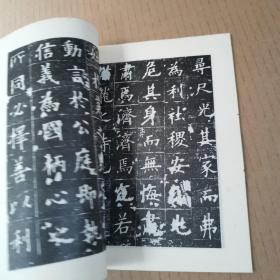 尋尺光其家而弗
為利社稷安也
危其身而無悔
肅焉濟濟焉若
龍之
動於公庭即
信義為國柄心之
所同必擇善以利